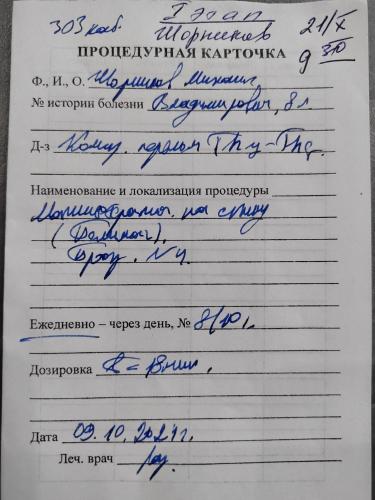 303 каб. I этап 21/X
Шорников 9 30
ПРОЦЕДУРНАЯ КАРТОЧКА
Ф., И., О. Шорников Михаил
№ истории болезни Владимирович, 8 л
Д-з Комп. перелом Th4-Th6.
Наименование и локализация процедуры
Магнитотерапия на спину
(Полимаг),
№4.
Ежедневно – через день, № 8/10/.
Дозировка t = 18 мин.
Дата 09.10.2024г.
Леч. врач